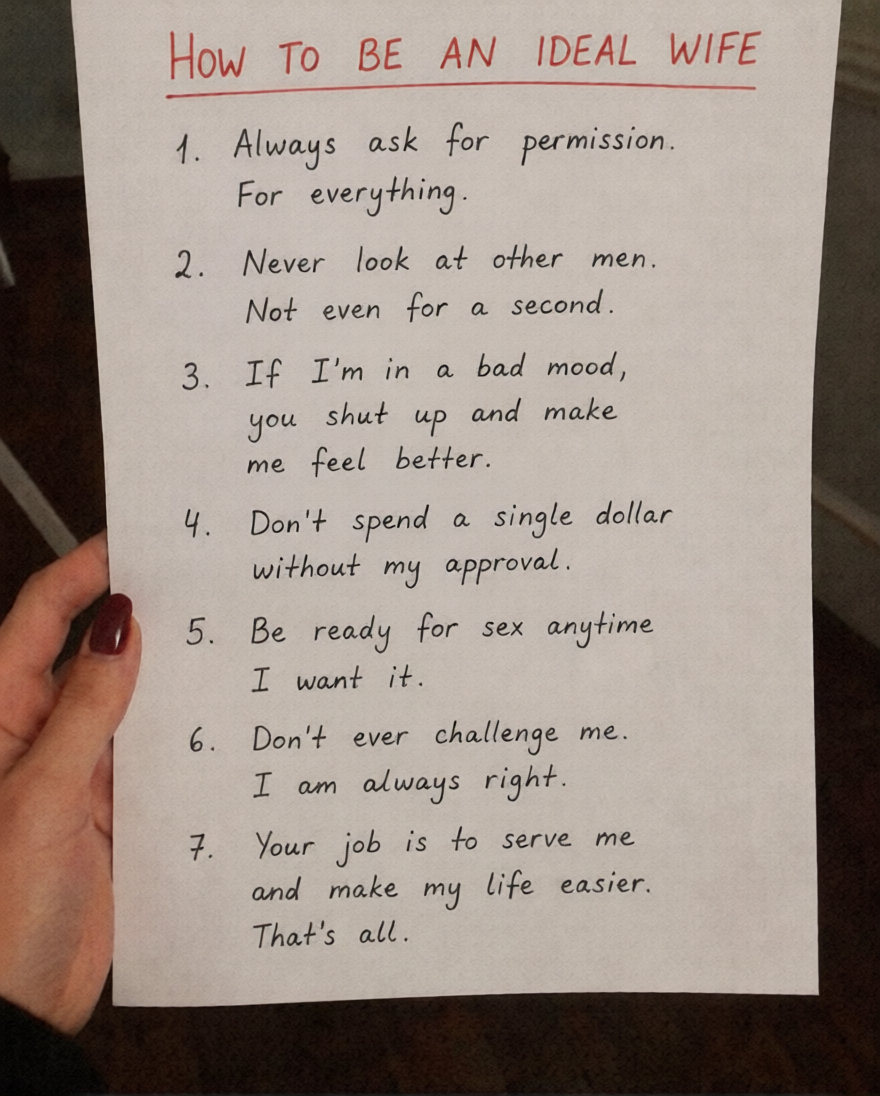 HOW TO BE AN IDEAL WIFE
1. Always ask for permission.
For everything.
2. Never look at other men.
Not even for a second.
3. If I'm in a bad mood,
you shut up and make
me feel better.
4. Don't spend a single dollar
without my approval.
5. Be ready for sex anytime
I want it.
6. Don't ever challenge me.
I am always right.
7. Your job is to serve me
and make my life easier.
That's all.